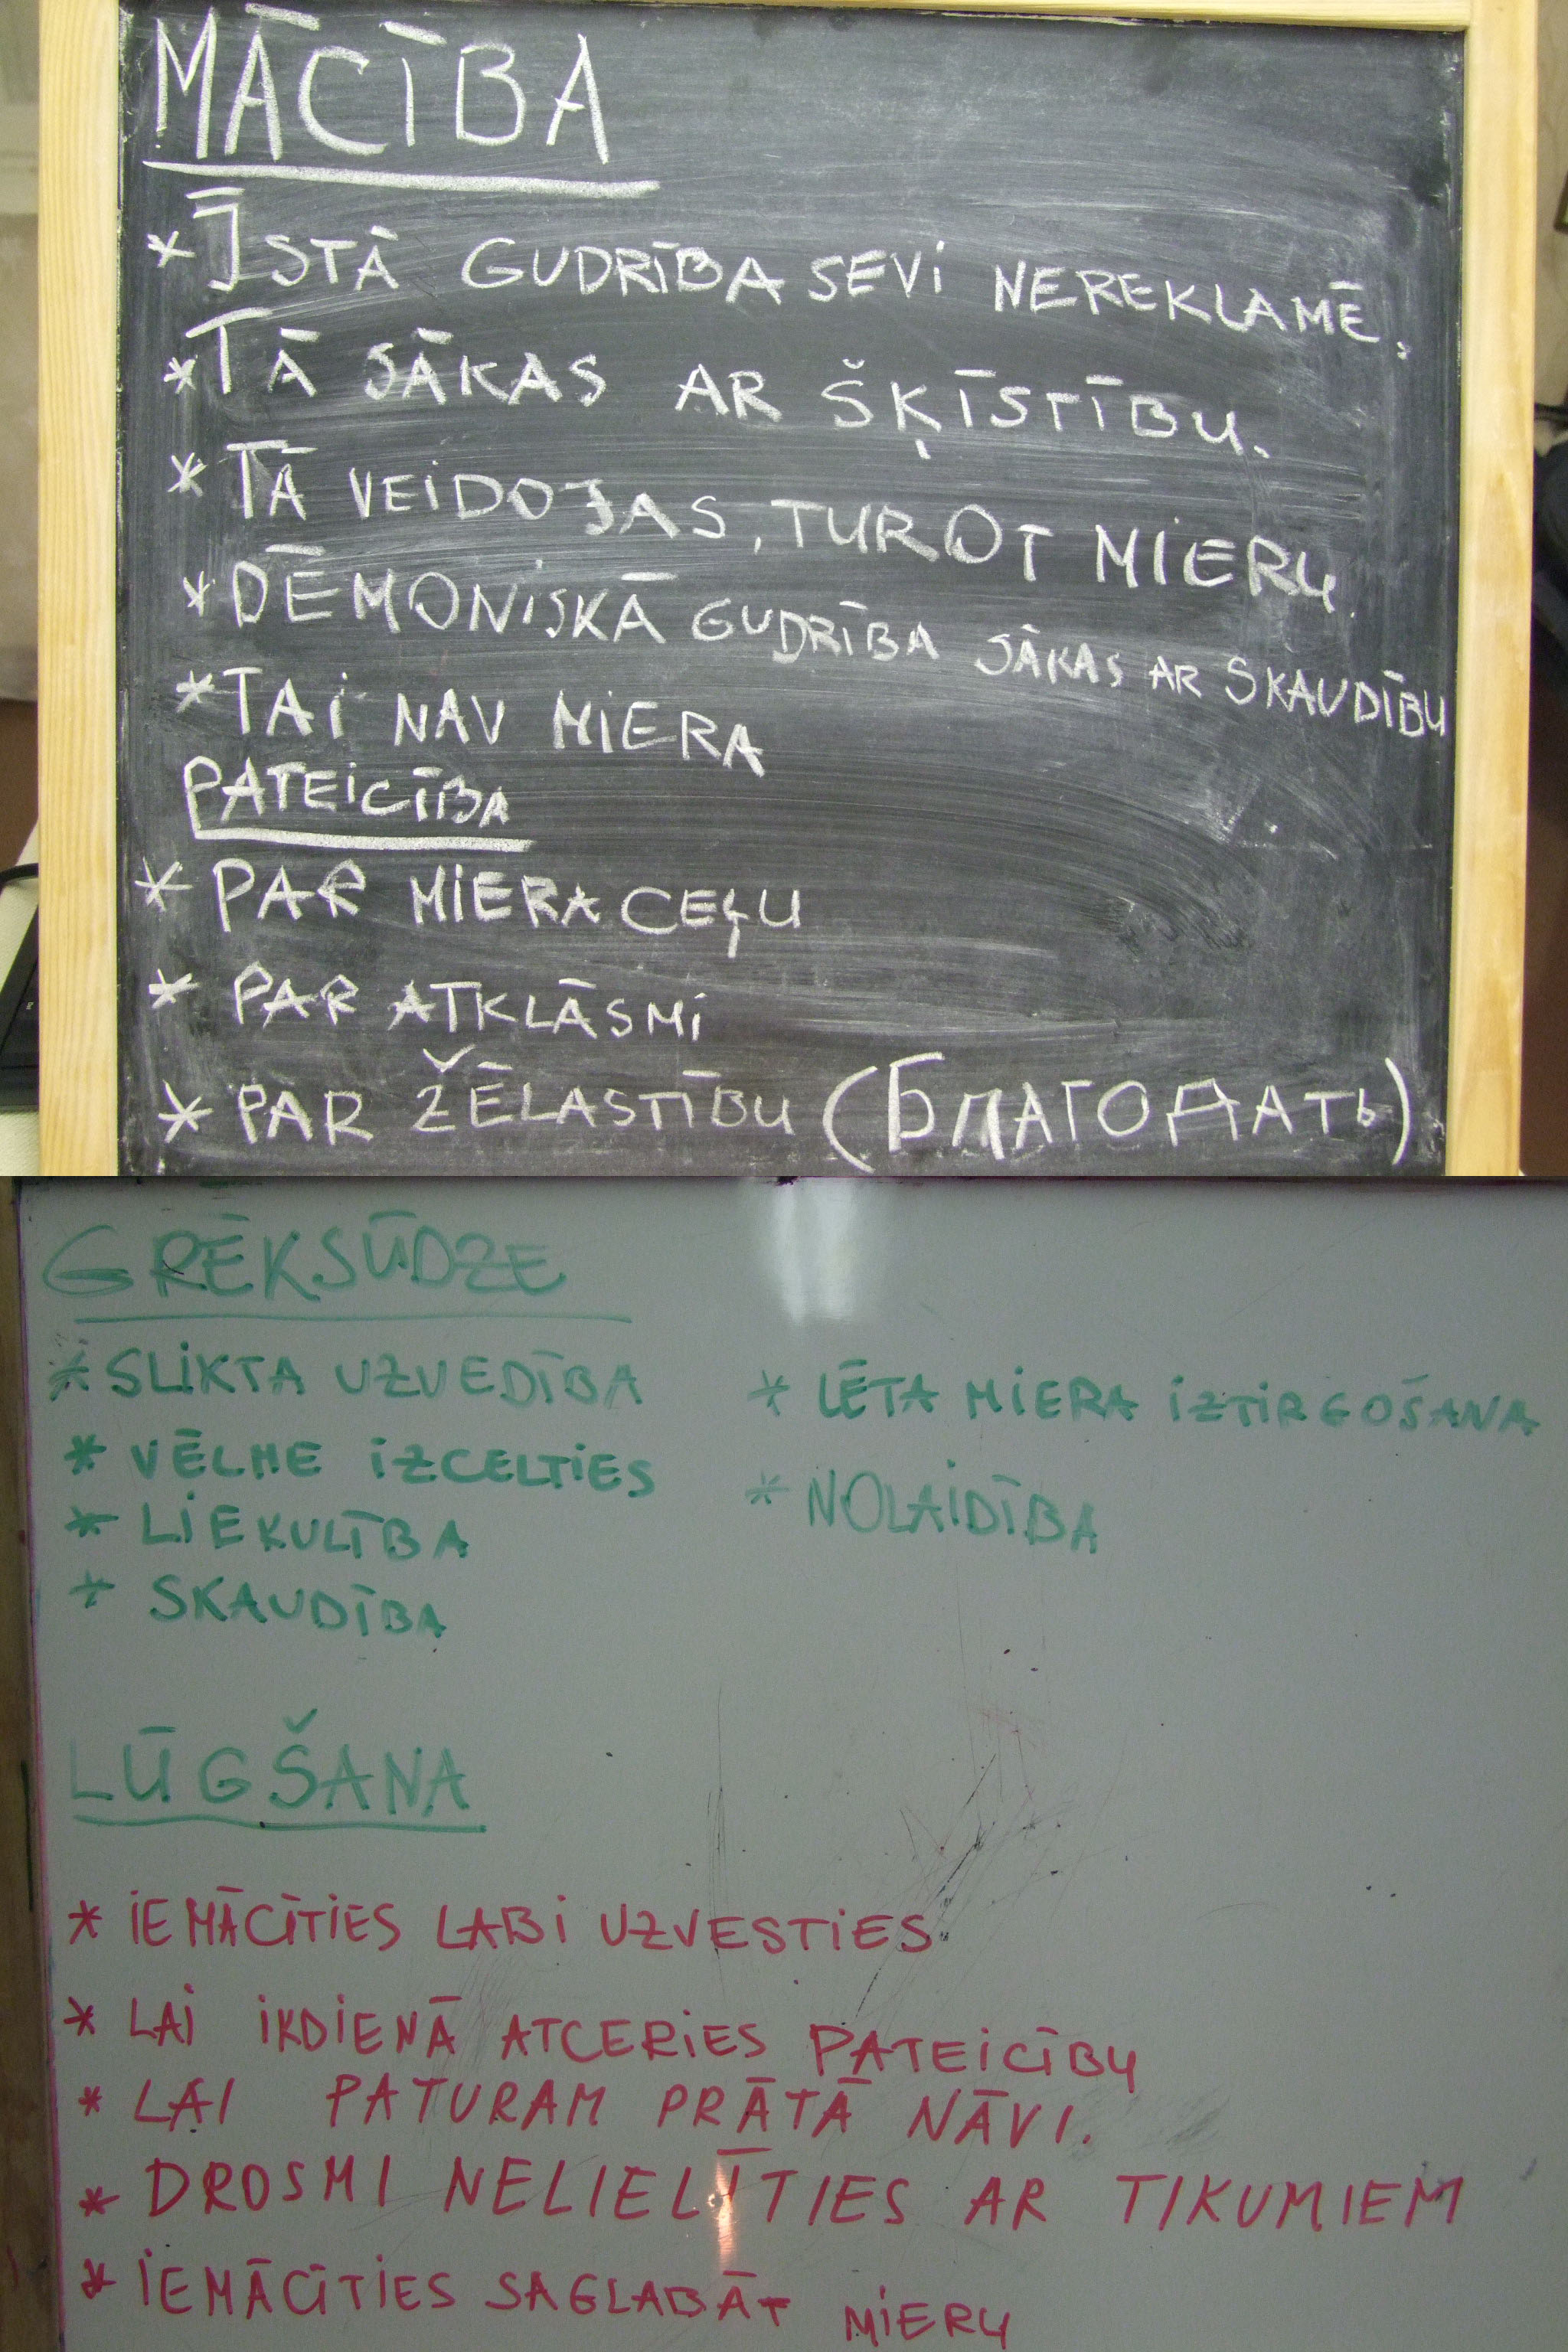 MĀCĪBA
* ĪSTĀ GUDRĪBA SEVI NEREKLAMĒ.
* TĀ SĀKAS AR ŠĶĪSTĪBU.
* TĀ VEIDOJAS, TUROT MIERU.
* DĒMONISKĀ GUDRĪBA SĀKAS AR SKAUDĪBU
* TAI NAV MIERA
PATEICĪBA
* PAR MIERA CEĻU
* PAR ATKLĀSMI
* PAR ŽĒLASTĪBU (БЛАГОДАТЬ)
GRĒKSŪDZE
* SLIKTA UZVEDĪBA
* VĒLME IZCELTIES
* LIEKULĪBA
* SKAUDĪBA
* LĒTA MIERA IZTIRGOŠANA
* NOLAIDĪBA
LŪGŠANA
* IEMĀCĪTIES LABI UZVESTIES
* LAI IKDIENĀ ATCERIES PATEICĪBU
* LAI PATURAM PRĀTĀ NĀVI.
* DROSMI NELIELĪTIES AR TIKUMIEM
* IEMĀCĪTIES SAGLABĀT MIERU